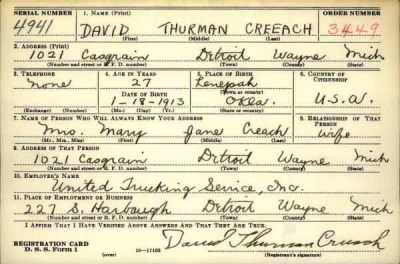 SERIAL NUMBER 1. NAME (Print) ORDER NUMBER
4941 DAVID THURMAN CREEACH 3449
(First) (Middle) (Last)
2. ADDRESS (Print)
1021 Casgrain Detroit Wayne Mich
(Number and street or R. F. D. number) (Town) (County) (State)
3. TELEPHONE 4. AGE IN YEARS 5. PLACE OF BIRTH 6. COUNTRY OF CITIZENSHIP
none 27 Lenepah
DATE OF BIRTH (Town or county)
1-18-1913 Okla. U.S.A.
(Exchange) (Number) (Mo.) (Day) (Yr.) (State or country)
7. NAME OF PERSON WHO WILL ALWAYS KNOW YOUR ADDRESS 8. RELATIONSHIP OF THAT PERSON
Mrs. Mary Jane Creach wife
(Mr., Mrs., Miss) (First) (Middle) (Last)
9. ADDRESS OF THAT PERSON
1021 Casgrain Detroit Wayne Mich
(Number and street or R. F. D. number) (Town) (County) (State)
10. EMPLOYER'S NAME
United Trucking Service, Inc.
11. PLACE OF EMPLOYMENT OR BUSINESS
227 S. Harbaugh Detroit Wayne Mich
(Number and street or R. F. D. number) (Town) (County) (State)
I AFFIRM THAT I HAVE VERIFIED ABOVE ANSWERS AND THAT THEY ARE TRUE.
REGISTRATION CARD David Thurman Creeach
D. S. S. Form 1 (over) 16-17105 (Registrant's signature)